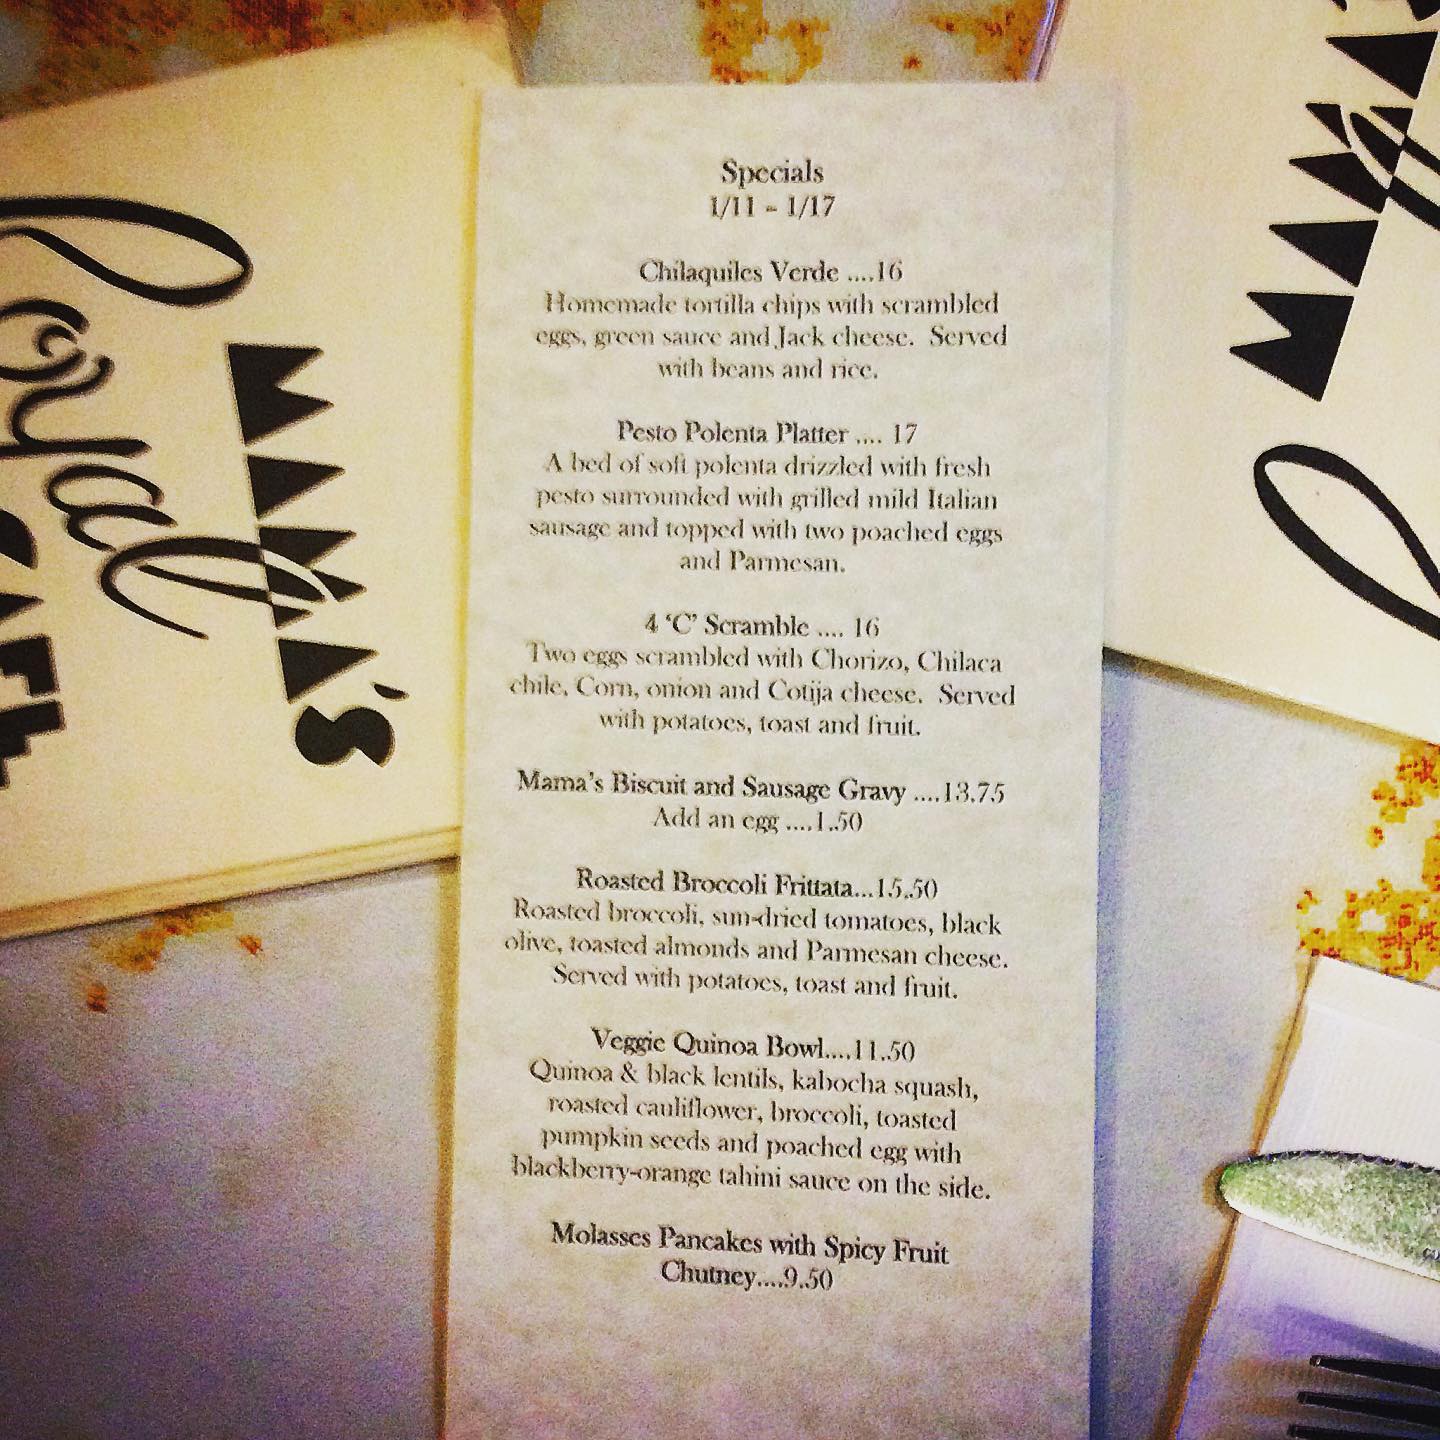 Specials
1/11 - 1/17
Chilaquiles Verde ....16
Homemade tortilla chips with scrambled
eggs, green sauce and Jack cheese.  Served
with beans and rice.
Pesto Polenta Platter .... 17
A bed of soft polenta drizzled with fresh
pesto surrounded with grilled mild Italian
sausage and topped with two poached eggs
and Parmesan.
4 ‘C’ Scramble .... 16
Two eggs scrambled with Chorizo, Chilaca
chile, Corn, onion and Cotija cheese.  Served
with potatoes, toast and fruit.
Mama’s Biscuit and Sausage Gravy ....13.75
Add an egg ....1.50
Roasted Broccoli Frittata...15.50
Roasted broccoli, sun-dried tomatoes, black
olive, toasted almonds and Parmesan cheese.
Served with potatoes, toast and fruit.
Veggie Quinoa Bowl....11.50
Quinoa & black lentils, kabocha squash,
roasted cauliflower, broccoli, toasted
pumpkin seeds and poached egg with
blackberry-orange tahini sauce on the side.
Molasses Pancakes with Spicy Fruit
Chutney....9.50
MAMA’S
Royal